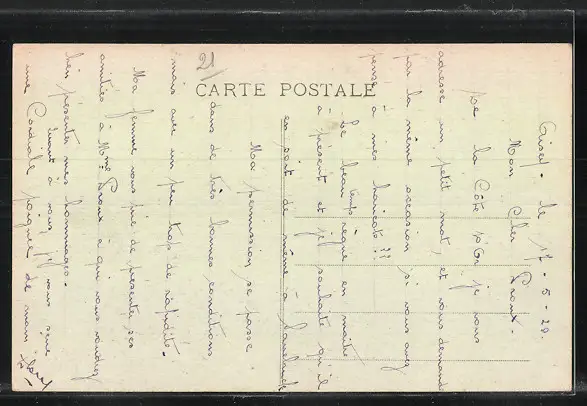 21
CARTE POSTALE
le 17-5-28.
Mon Cher Proux.
De la Côte d'Or je vous
adresse un petit mot, et vous demande
par la même occasion si vous avez
pensé à mes haricots ??
Le beau temps règne en maître
à présent et je souhaite qu'il
en soit de même à
Ma permission se passe
dans de très bonnes conditions
mais avec un peu trop de rapidité.
Ma femme vous prie de présenter ses
amitiés à Mme Proux à qui vous voudrez
bien présenter mes hommages.
Quant à vous je vous serre
une Cordiale poignée de main